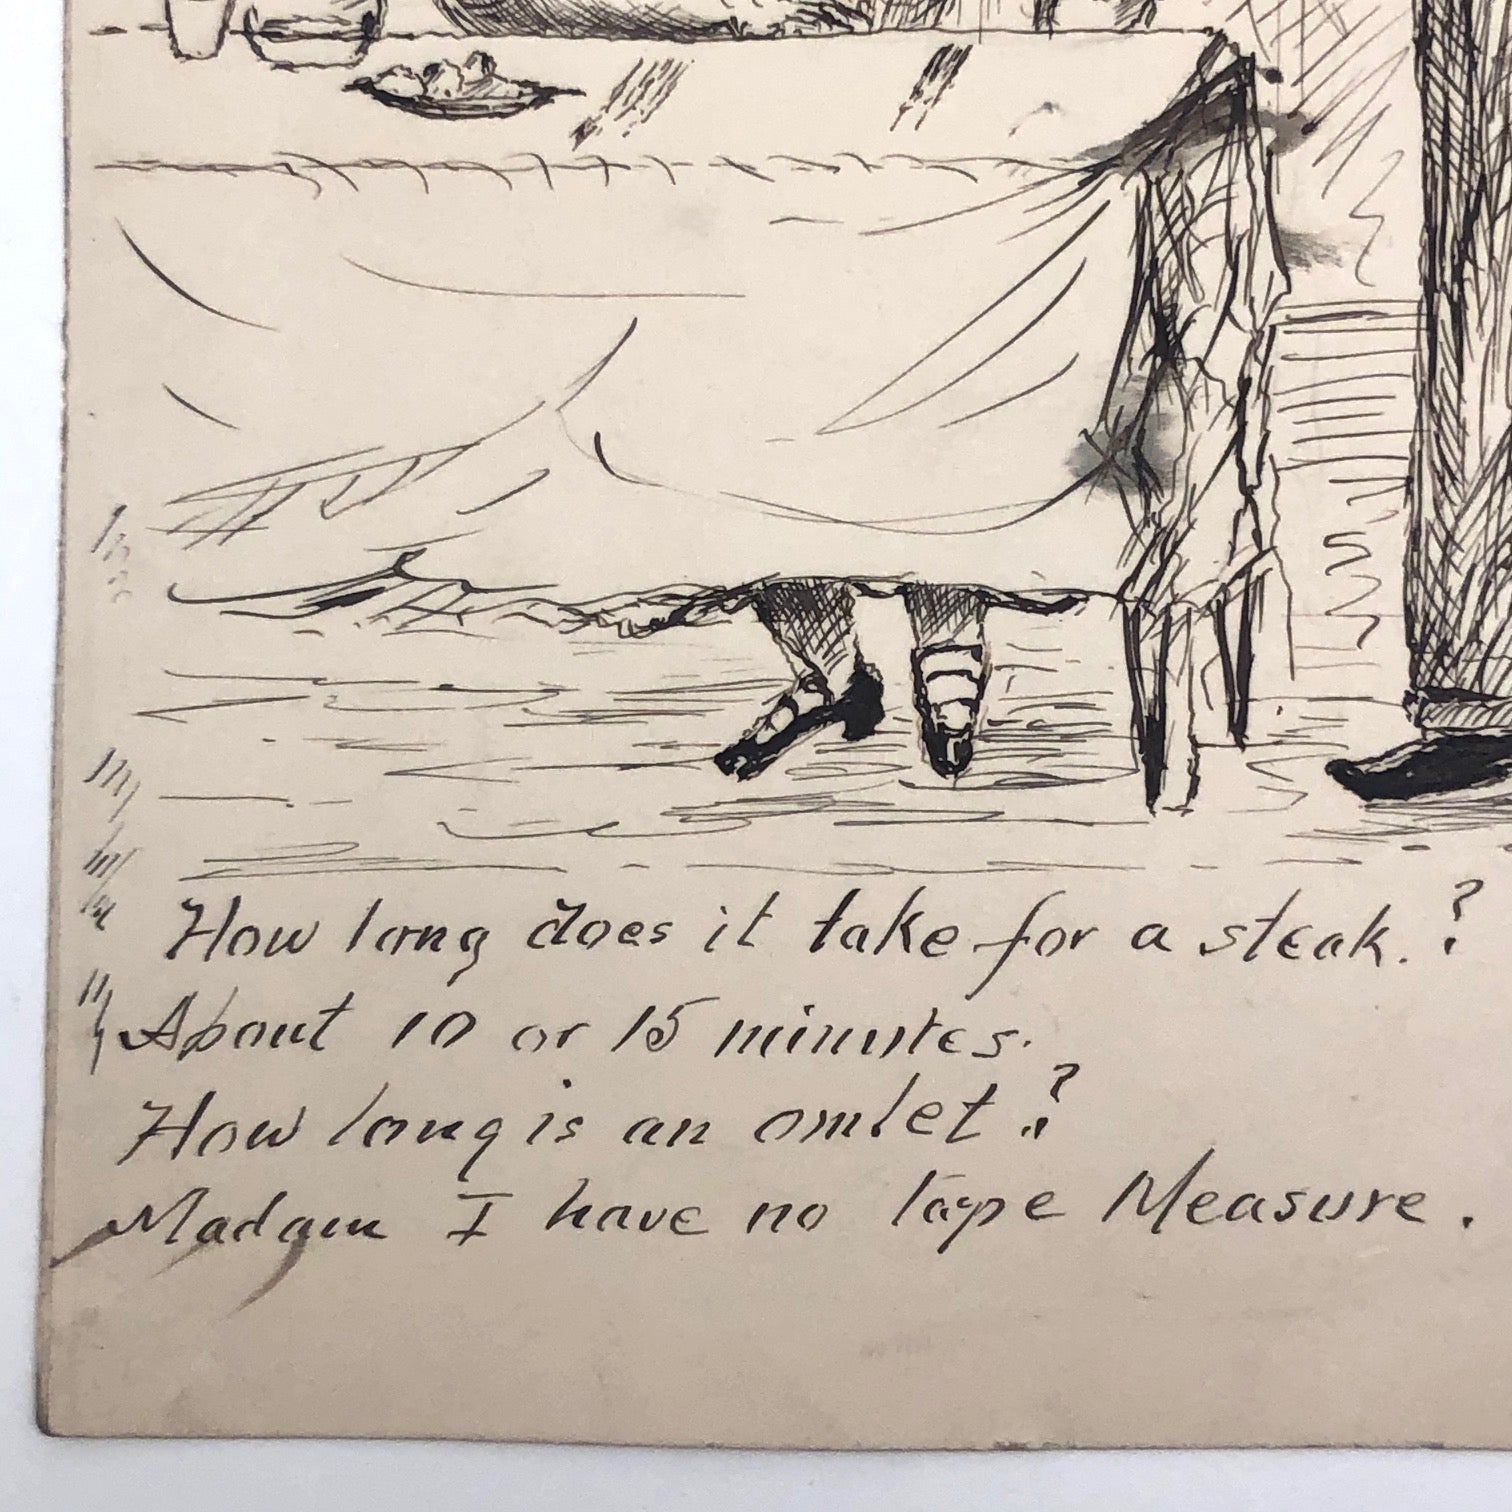 How long does it take for a steak. ?
About 10 or 15 minutes.
How long is an omlet ?
Madam I have no tape Measure .